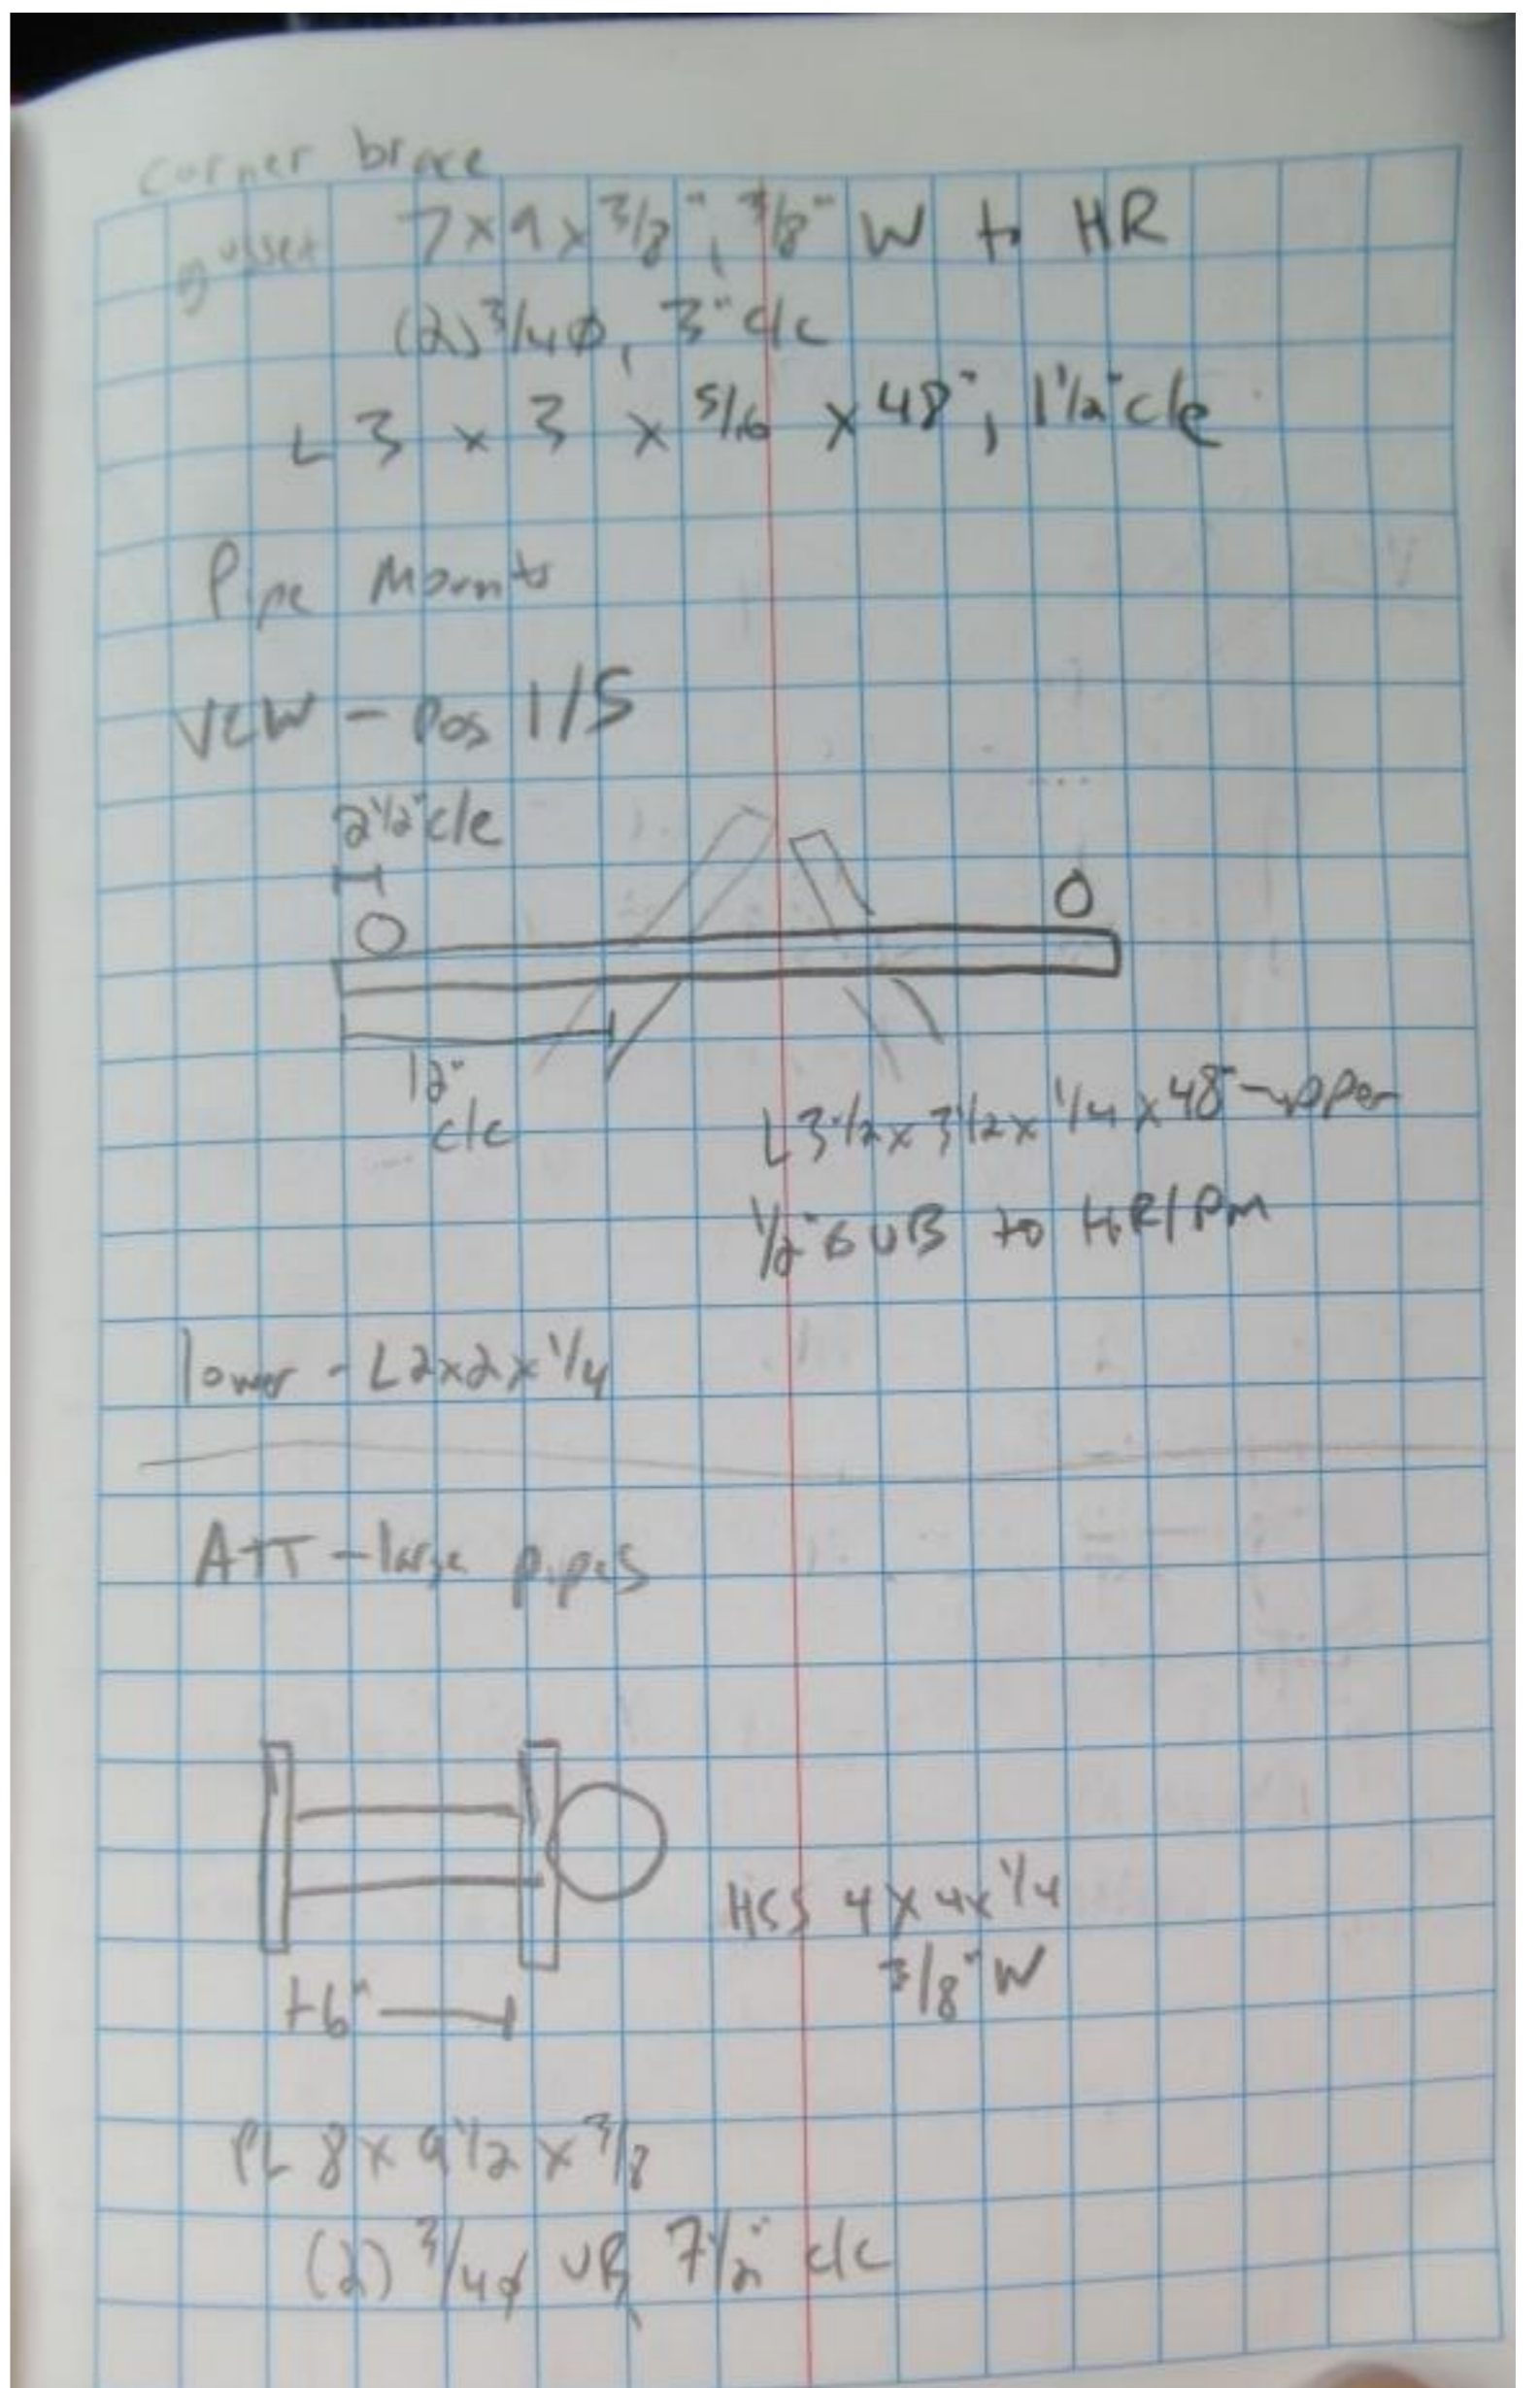 corner brace
gusset 7x9x3/8", 3/8" W to HR
(2) 3/4ø, 3" c/c
L 3 x 3 x 5/16 x 48", 1 1/2" c/e
Pipe Mounts
VZW - Pos 1/5
2 1/2" c/e
12"
c/c
L3 1/2 x 3 1/2 x 1/4 x 48" - upper
1/2"ø UB to HR/PM
lower - L2x2x1/4
ATT - large pipes
HSS 4x4x1/4
3/8" W
+6"
PL 8 x 9 1/2 x 3/8
(2) 3/4ø UB, 7 1/2" c/c